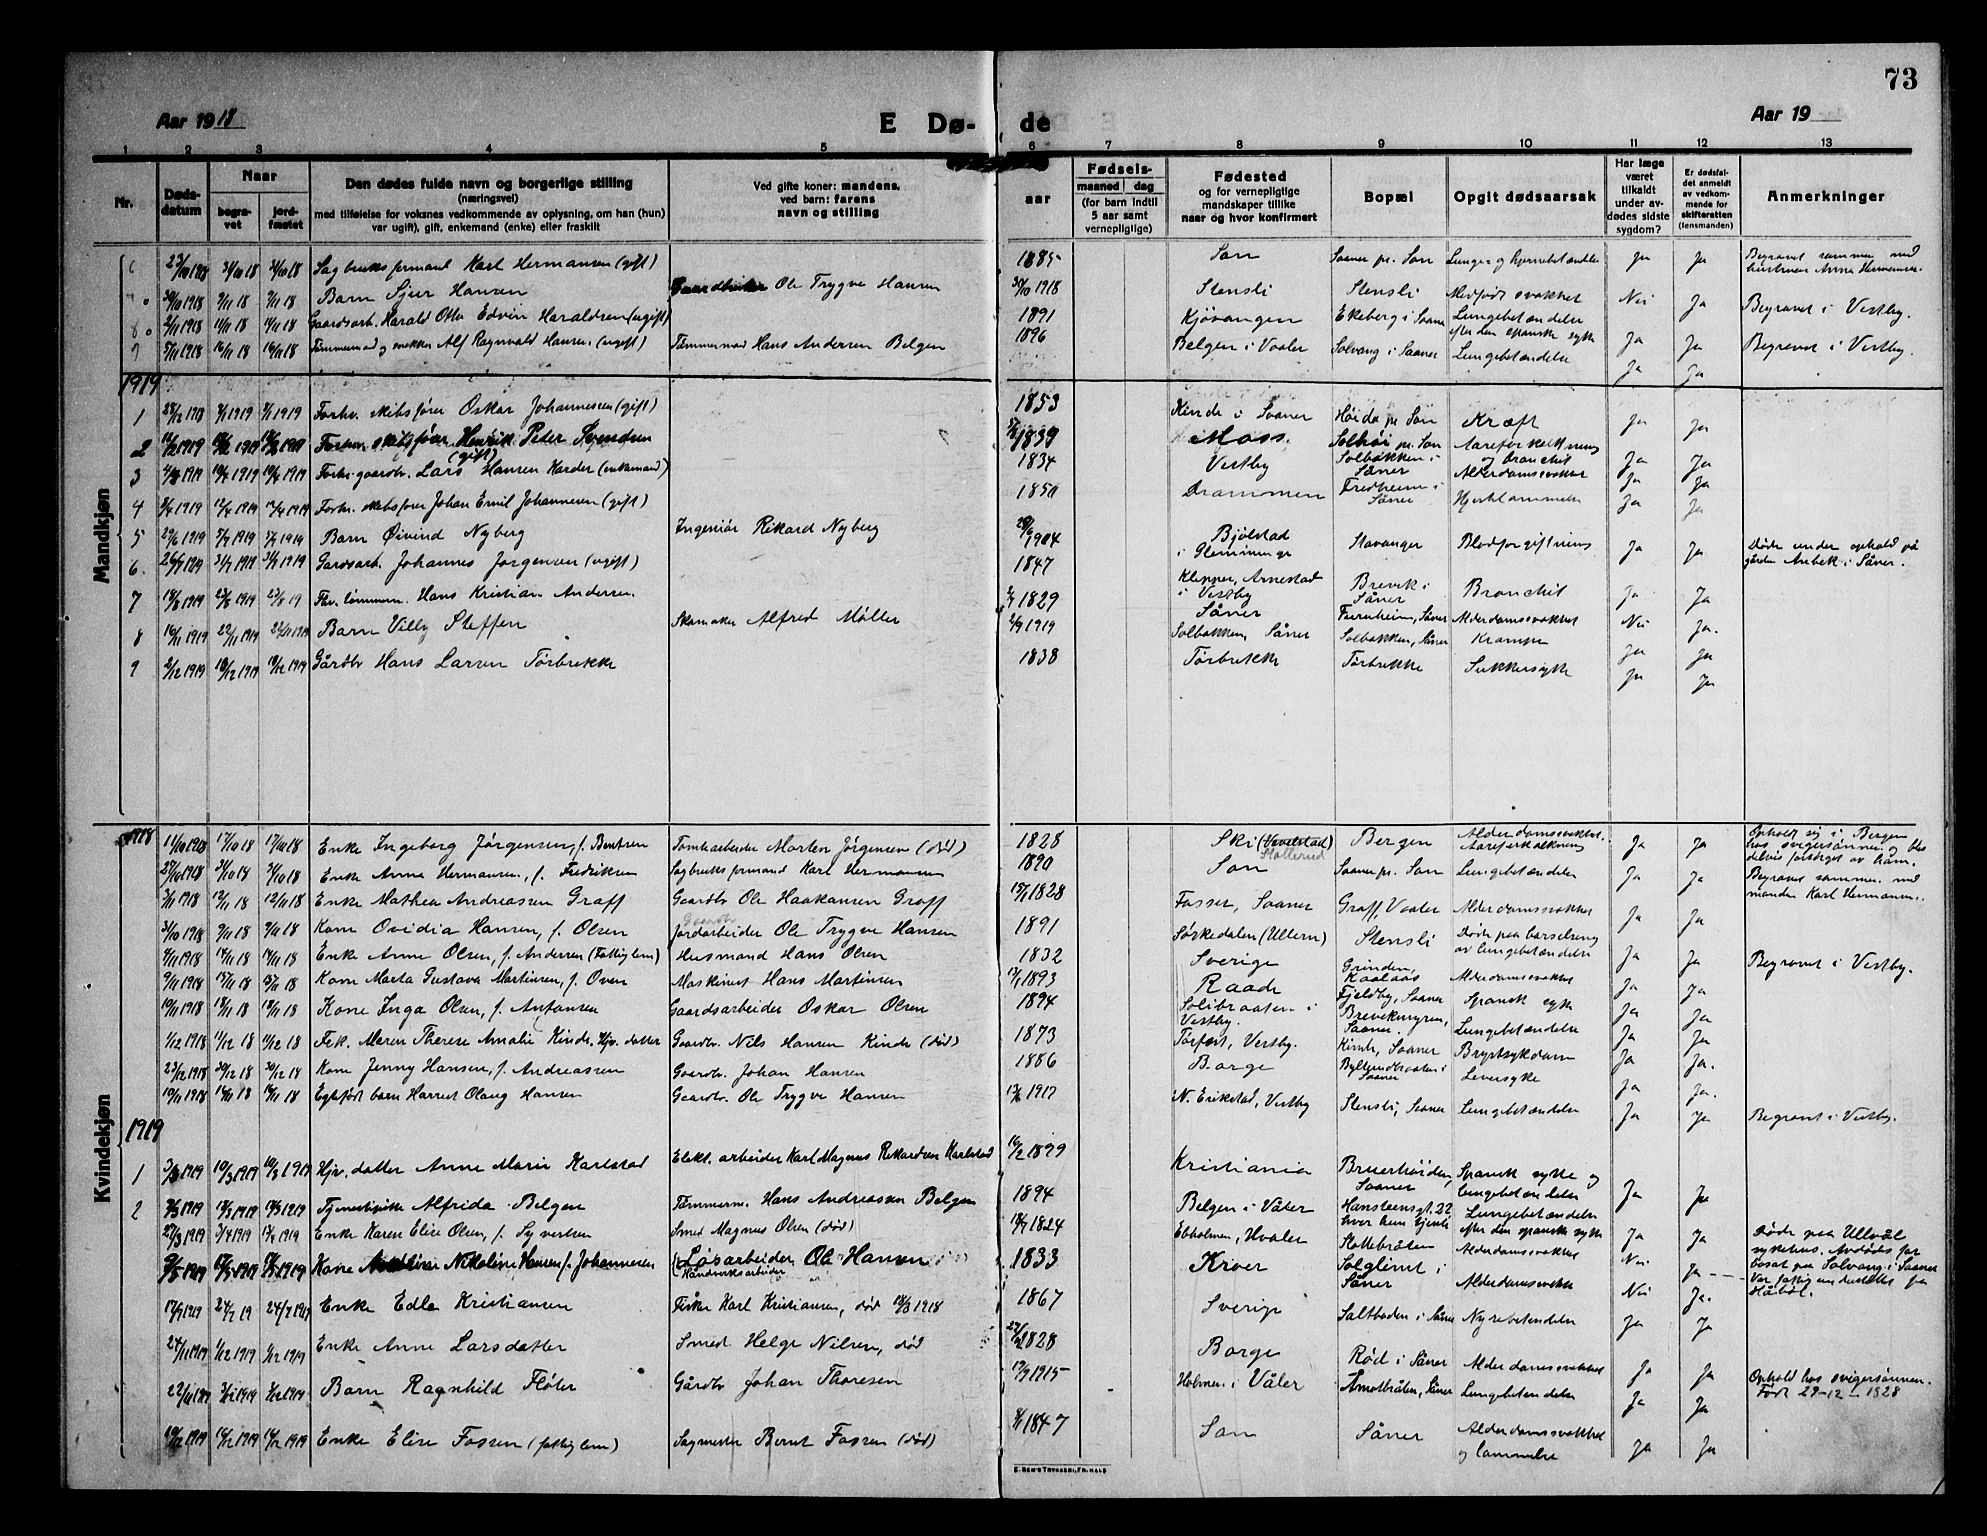 73
Aar 1918
E Dø- de
Aar 19
1 2 3 4 5 6 7 8 9 10 11 12 13
Nr.
Døds-datum
Naar
begra-vet
jord-fæstet
Den dødes fulde navn og borgerlige stilling
(næringsvei)
med tilføielse for voksnes vedkommende av oplysning, om han (hun)
var ugift), gift, enkemand (enke) eller fraskilt
Ved gifte koner: mandens,
ved barn: farens
navn og stilling
aar
Fødsels-
maaned dag
(for barn indtil
5 aar samt
vernepligtige)
Fødested
og for vernepligtige
mandskaper tillike
naar og hvor konfirmert
Bopæl
Opgit dødsaarsak
Har læge
været
tilkaldt
under av-
dødes sidste
sygdom?
Er dødsfal-
det anmeldt
av vedkom-
mende for
skifteretten
(lensmanden)
Anmerkninger
Mandkjøn
6 23/10 1918 31/10 18 31/10 18 Sagbruksformand Karl Hermansen (gift) 1885 Son Saaner pr. Son Lunge og hjernebetændelse Ja Ja Begravet sammen med hustruen Anna Hermansen.
7 30/10 1918 9/11 18 9/11 18 Barn Sjur Hansen Gaardbruker Ole Trygve Hansen 30/10 1918 Stensli Stensli Medfødt svakhet Nei Ja Begravet i Vestby.
8 2/11 1918 14/11 18 14/11 18 Gaardsarb. Harald Otto Edvin Haraldsen (ugift) 1891 Kjøvangen Ekeberg i Saaner Lungebetændelse efter den spanske syke Ja Ja
9 5/11 1918 16/11 18 16/11 18 Tømmermand og snekker Alf Ragnvald Hansen (ugift) Tømmermand Hans Andersen Belgen 1896 Belgen i Vaaler Solvang i Saaner Lungebetændelse Ja Ja Begravet i Vestby.
1919
1 28/12 1918 3/1 1919 3/1 1919 Forhv. skibsfører Oskar Johannesen (gift) 1853 Kinde i Saaner Høida pr. Son Kræft Ja Ja
2 Forhv. skibsfører Henrik Peter Svendsen (gift) 1839 Moss Solhøi pr. Son Aareforkalkning og bronchit Ja Ja
3 Forhv. gaardbr. Lars Hansen Harder (enkemand) 1834 Vestby Solbakken i Såner Alderdomssvakhet Ja Ja
4 12/4 1919 12/4 1919 Forhv. skibsfører Johan Emil Johannesen (gift) 1850 Drammen Fredheim i Såner Hjertelammelse Ja Ja
5 29/6 1919 5/7 1919 5/7 1919 Barn Øivind Nyberg Ingeniør Rikard Nyberg 1904 Bjølstad i Glemminge Stavanger Blodforgiftning Ja Ja Døde under ophold på gården Aabek i Såner.
6. 26/7 1919 31/7 1919 31/7 1919 Gårdsarb. Johannes Jørgensen (ugift) 1847 Klepper, Arnestad i Vestby Brevik i Såner Bronchit Ja Ja
7 18/8 1919 23/8 1919 23/8 19 Fhv. tømmerm. Hans Kristian Andersen 1829 Såner Furuheim, Såner Alderdomssvakhet Nei Ja.
8 16/11 1919 22/11 1919 22/11 1919 Barn Villy Steffen Skomaker Alfred Møller 2/9 1919 Solbakken, Såner Solbakken, Såner Krampe Ja Ja
9 2/12 1919 10/12 1919 10/12 1919 Gårdbr Hans Larsen Tørbrekke 1838 Tørbrekke Tørbrekke Sukkersyke Ja Ja
Kvindekjøn
1918 11/10 1918 17/10 18 17/10 18 Enke Ingeborg Jørgensen f. Bentsen Tomtearbeider Morten Jørgensen (død) 1828 Ski (Vevelstad) Bergen Alderdomssvakhet. Aareforkalkning Ja Ja Opholdt sig i Bergen hos svigersønnen og blev delvis forsørget av ham.
25/10 1918 31/10 18 31/10 18 Enke Anna Hermansen, f. Fredriksen Sagbruksformand Karl Hermansen 1890 Son Saaner pr. Son Lungebetændelse Ja Ja Begravet sammen med manden Karl Hermansen.
3/11 1918 12/11 18 12/11 18 Enke Mathea Andreassen Graff Gaardbr Ole Haakansen Graff 15/1 1828 Fosser, Saaner Graff, Vaaler Alderdomssvakhet Ja Ja
31/10 1918 9/11 18 9/11 18 Kone Ovidia Hansen, f. Olsen Gaardbr Jordarbeider Ole Trygve Hansen 1891 Sørkedalen (Ullern) Stensli Døde paa barselseng av lungebetændelse Ja Ja Begravet i Vestby.
9/11 1918 14/11 18 14/11 18 Enke Anne Olsen, f. Andersen (Fattiglem) Husmand Hans Olsen 1832 Sverige Grinden, Raalaas Alderdomssvakhet Ja Ja
9/11 1918 15/11 18 15/11 18 Kone Marta Gustava Martinsen, f. Oven Maskinist Hans Martinsen 17/1 1893 Raade Fjeldby, Saaner Spansk syke Ja Ja
10/11 1918 18/11 18 18/11 18 Kone Inga Olsen, f. Antonsen Gaardsarbeider Oskar Olsen 1894 Solibraaten i Vestby. Brevikmyren, Saaner. Lungebetændelse Ja Ja
1/12 1918 11/12 18 11/12 18 Frk. Maren Therese Amalie Kinde, Hjv. datter Gaardbr. Nils Hansen Kinde (død) 1873 Torfest, Vestby. Kinde, Saaner Brystsykdom Ja Ja.
23/12 1918 30/12 18 30/12 18 Kone Jenny Hansen, f. Andreassen Gaardbr. Johan Hansen 1886 Borge Byllerudbraaten i Saaner Leversyke Ja Ja.
10/11 1918 16/11 18 16/11 18 Egtefødt barn Harriet Olaug Hansen Gaardbr. Ole Trygve Hansen 1917 N. Erikstad, Vestby Stensli, Saaner Lungebetændelse Ja Ja Begravet i Vestby.
1919
1 3/3 1919 10/3 1919 10/3 1919 Hjv. datter Anne Marie Karlstad Elekt. arbeider Karl Magnus Rikardsen Karlstad 16/2 1899 Kristiania Bruerhøiden, Saaner Spansk syke og lungebetændelse Ja Ja
2 Tjenestepike Alfrida Belgen Tømmerm. Hans Andreassen Belgen 1894 Belgen i Våler Hansteensgt. 22 hvor hun tjente Lungebetændelse efter den spanske syke Ja Ja Døde paa Ullevål sykehus. Avdødes far bosat paa Solvang i Saaner
27/3 1919 Enke Karen Elise Olsen, f. Syversen Smed Magnus Olsen (død) 1824 Ebbholmen, Hvaler Slottebråten Alderdomssvakhet Nei Ja Var fattigunderstøttet fra Håbøl.
Kone Nikoline Hansen f. Johannesen (Løsarbeider Ole Hansen Håndverksarbeider 1833 Kroer Solglimt i Såner Alderdomssvakhet Nei Ja.
17/7 1919 24/7 19 24/7 1919 Enke Edle Kristiansen Fisker Karl Kristiansen, død 18/3 1918 1867 Sverige Saltboden i Såner Nyrebetændelse Ja Ja
24/11 1919 1/12 1919 1/12 1919 Enke Anne Larsdatter Smed Helge Nilsen, død 1828 Borge Rød i Såner Alderdomssvakhet Ja Ja Ophold hos svigersønnen. Født 29-12-1828
22/11 1919 3/12 1919 3/12 1919 Barn Ragnhild Fløter Gårdbr Johan Thoresen 17/9 1915 Holmen i Våler Åmotbråten, Såner Lungebetændelse Ja Ja
10/12 1919 16/12 1919 16/12 1919 Enke Elise Fossen (fattiglem) Sagmester Bernt Fossen (død) 1847 Son Såner Alderdomssvakhet og lammelse Ja Ja
E. SEM'S TRYKKERI, FR.HALD